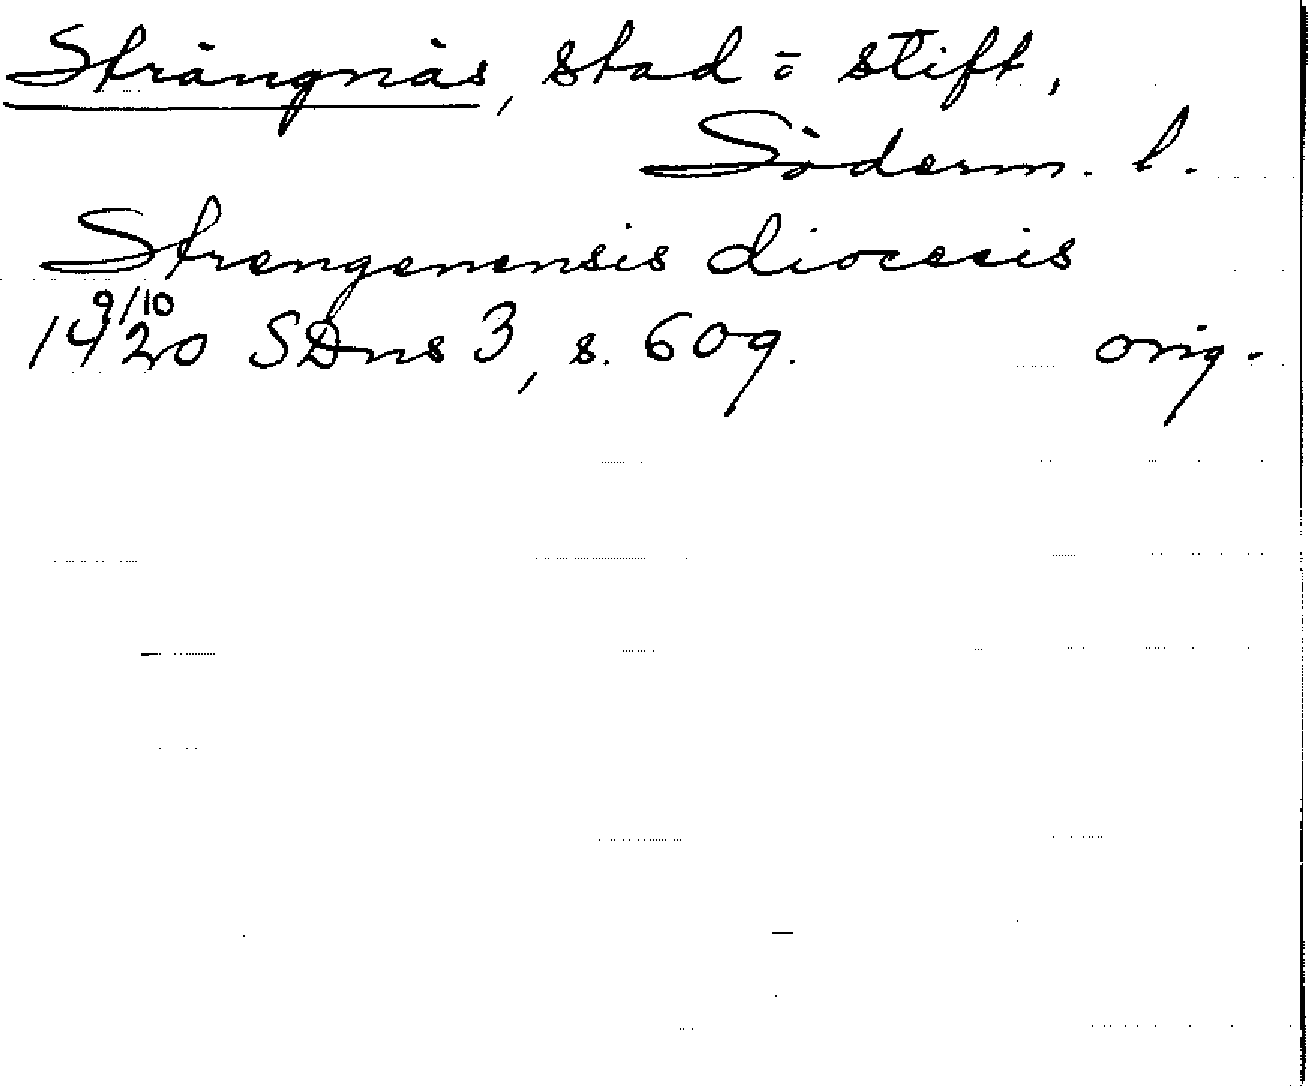 Strängnäs, stad o stift,
Söderm. l.
Strengenensis diocesis
9/10
1420 SDns 3, s. 609. orig.